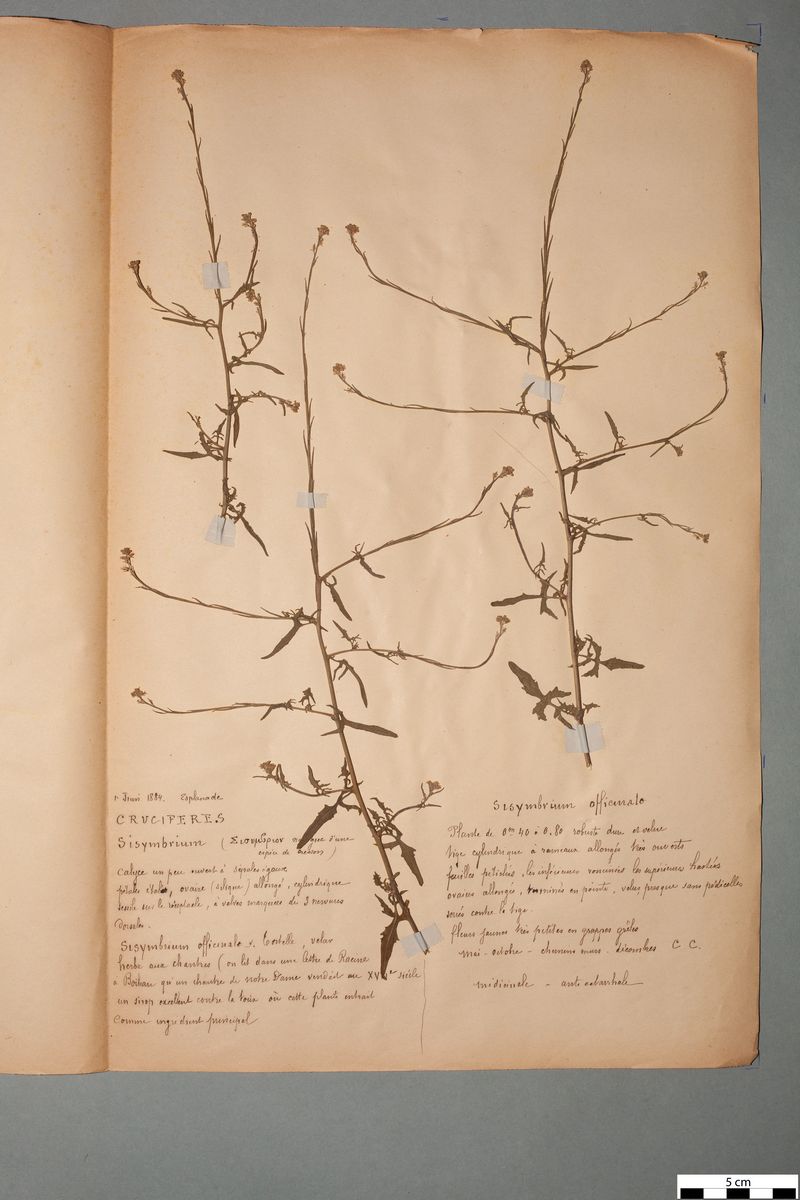 1er Juin 1884. Esplanade
CRUCIFERES
Sisymbrium (Σισυμβριον d'une
espèce de cresson)
Calyce un peu ouvert à sépales égaux
pétales étalés, ovaire (silique) allongé, cylindrique
sessile sur le réceptacle, à valves marquées de 3 nervures
Dorsales.
Sisymbrium officinale s. Tortelle, velar
herbe aux chantres (on lit dans une lettre de Racine
a Boileau qu'un chantre de notre Dame vendait au siècle
un sirop excellent contre la toux où cette plante entrait
comme ingrédient principal
Sisymbrium officinale
Plante de 0m 40 à 0.80 robuste dure et velue
tige cylindrique à rameaux allongés très ouverts
feuilles pétiolées, les inférieures roncinées les supérieures hastées
ovaires allongés, terminés en pointe, velus, presque sans pédicelles
serrés contre la tige.
fleurs jaunes très petites en grappes grêles
mai - octobre - chemins murs. décombres C C.
médicinale - anticatarrhale
5 cm